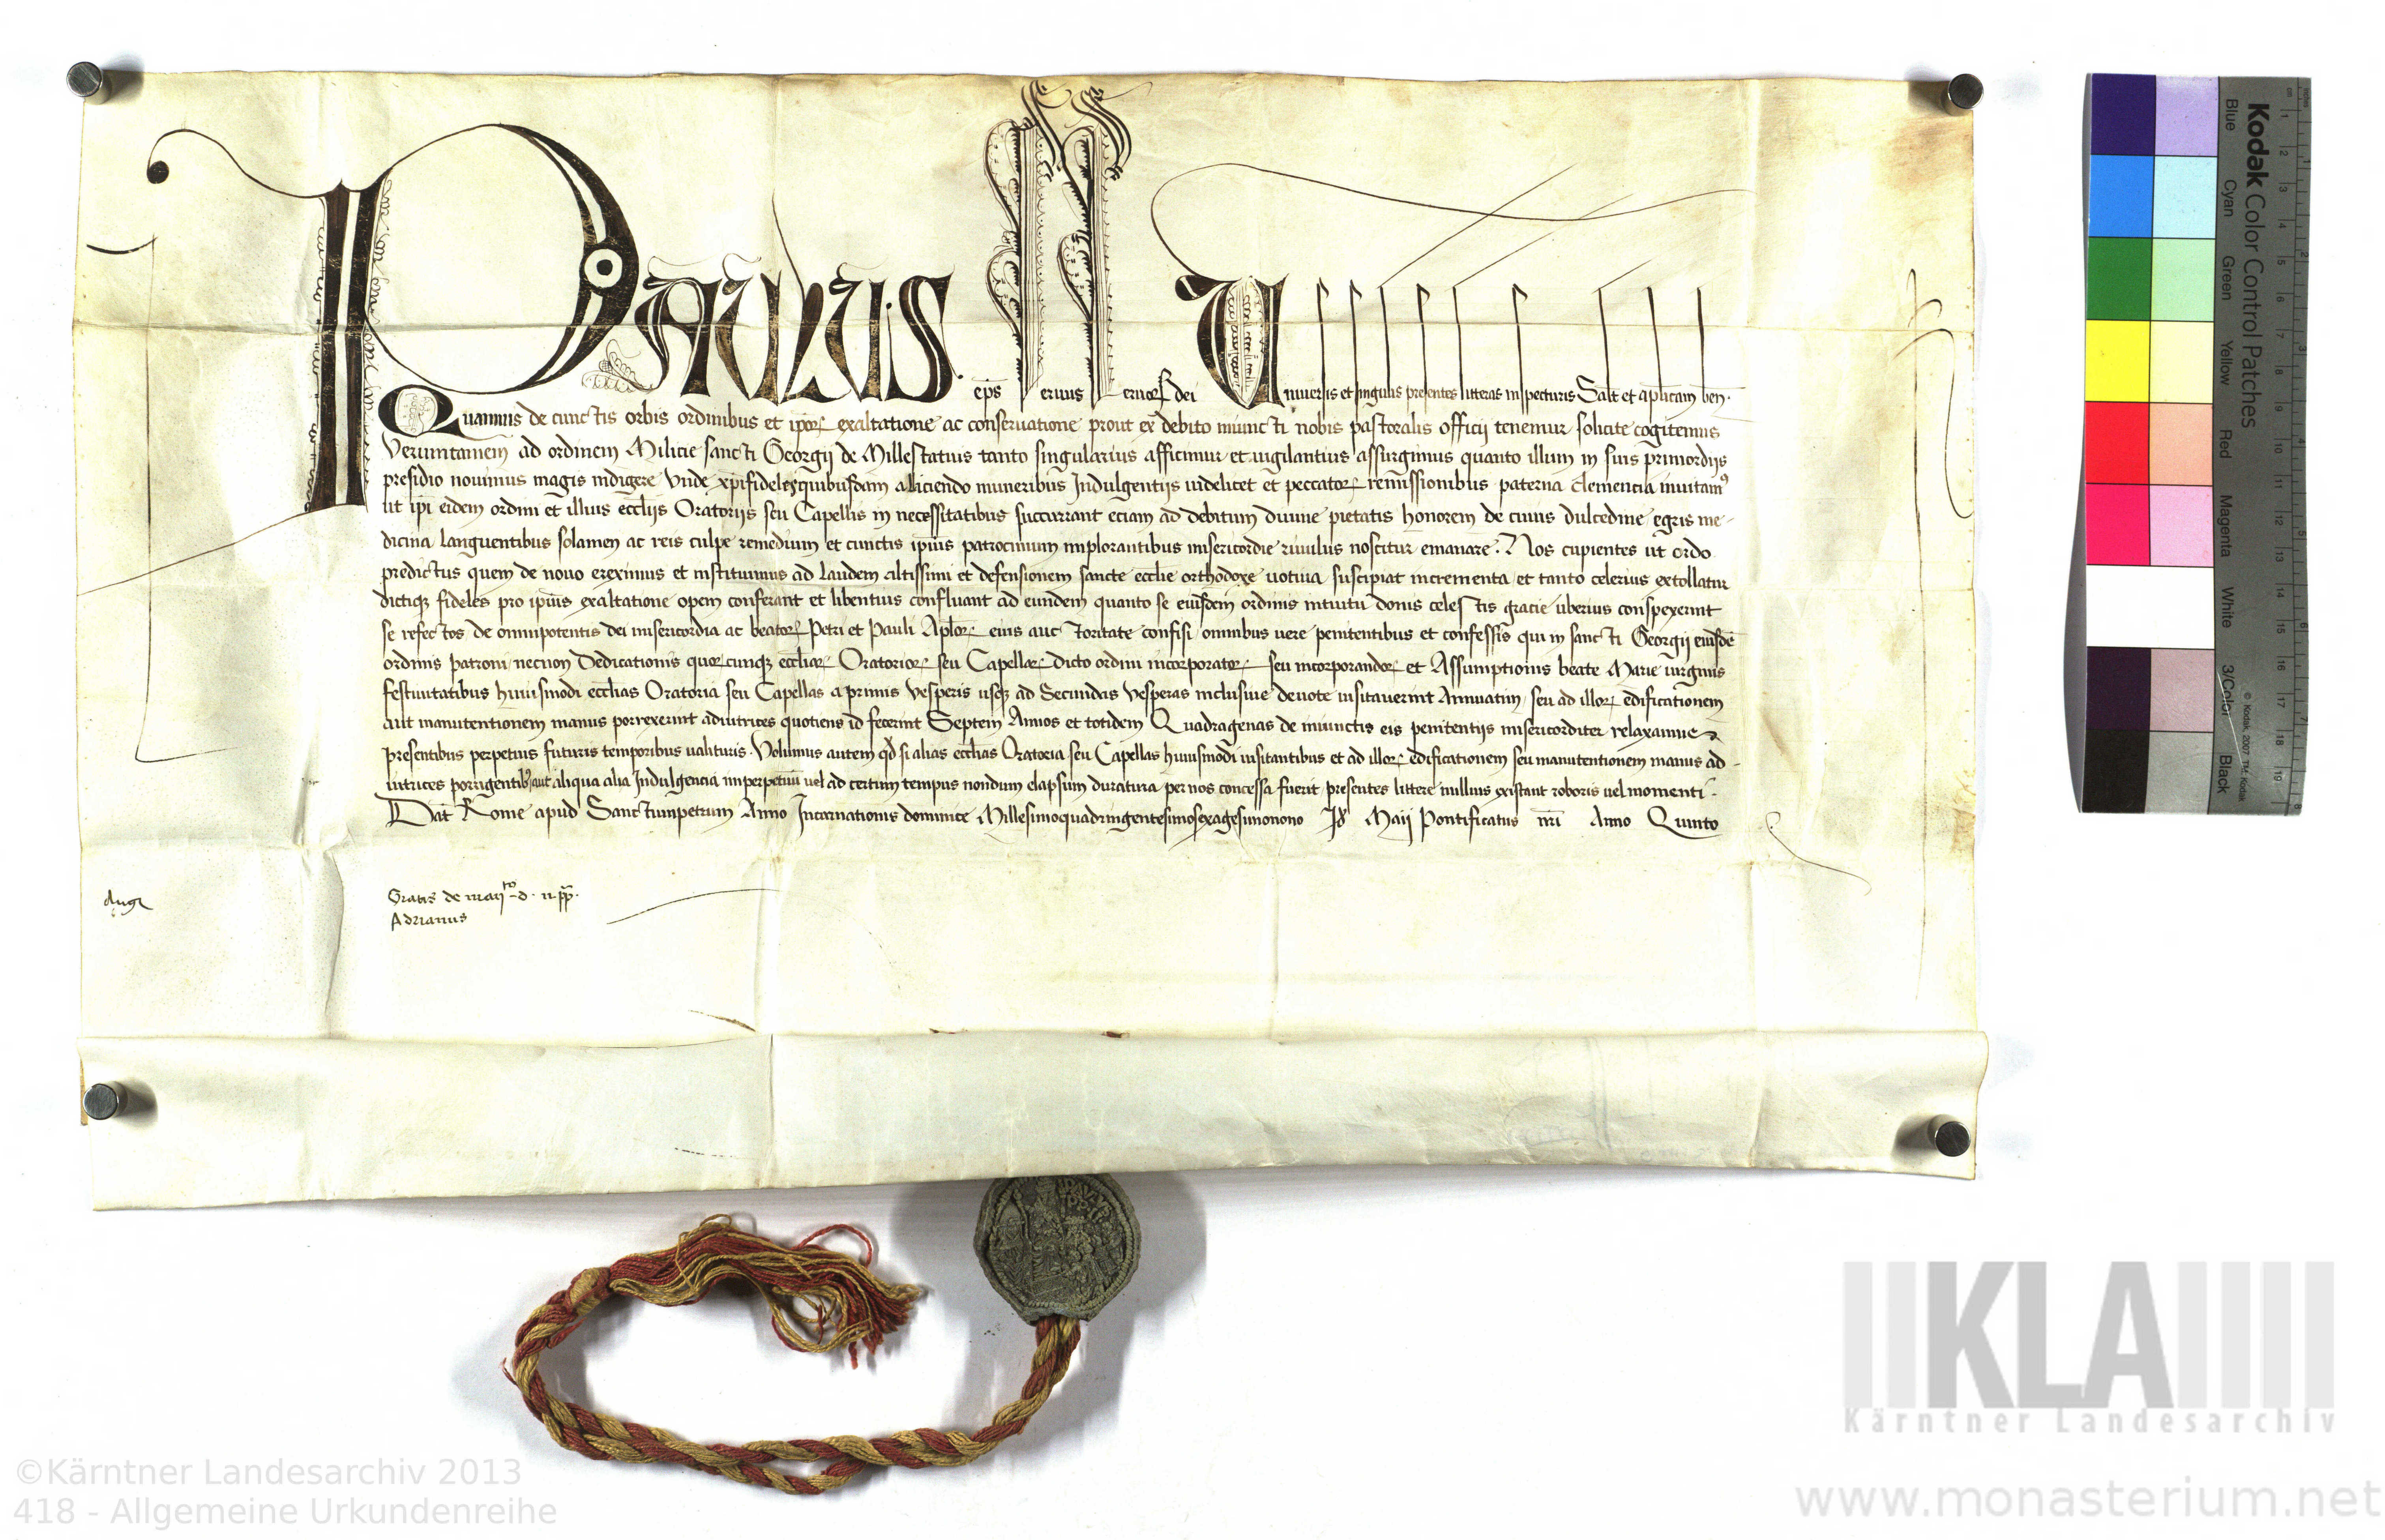 Paulus. eps Seruus Seruorꝝ dei Uniuersis et singulis presentes litteras inspecturis Salt et aplicam ben.
Quamuis de cunctis orbis ordinibus et ipoꝝ exaltatione ac conseruatione prout ex debito iniuncti nobis pastoralis officij tenemur solicite cogitemus
Veruntamen ad ordinem Milicie sancti Georgij de Millestatuis tanto singularius afficimur et uigilantius assurgimus quanto illum in suis primordijs
presidio nouimus magis indigere Unde xpifideles quibusdam alliciendo muneribus Indulgentijs uidelicet et peccatoꝝ remissionibus paterna clemencia inuitamꝰ
ut ipi eidem ordini et illius ecclijs Oratorijs seu Capellis in necessitatibus succurrant eciam ad debitum diuine pietatis honorem de cuius dulcedine egris me-
dicina languentibus solamen ac reis culpe remedium et cunctis ipius patrocinium implorantibus misericordie riuulus noscitur emanare. Nos cupientes ut ordo
predictus quem de nouo ereximus et instituimus ad laudem altissimi et defensionem sancte ecclie orthodoxe uotiua suscipiat incrementa et tanto celerius extollatur
dictiqꝫ fideles pro ipius exaltatione opem conferant et libentius confluant ad eundem quanto se eiusdem ordinis intuitu donis celestis gracie uberius conspexerint
se refectos de omnipotentis dei misericordia ac beatoꝝ Petri et Pauli Aploꝝ eius auctoritate confisi omnibus uere penitentibus et confessis qui in sancti Georgij eiusdē
ordinis patroni necnon Dedicationis quoꝝcunqꝫ eccliaꝝ Oratorioꝝ seu Capellaꝝ dicto ordini incorporatoꝝ seu incorporandoꝝ et Assumptionis beate Marie uirginis
festiuitatibus huiusmodi ecclias Oratoria seu Capellas a primis Vesperis usqꝫ ad Secundas Vesperas inclusiue deuote uisitauerint Annuatim seu ad illoꝝ edificationem
aut manutentionem manus porrexerint adiutrices quotiens id fecerint Septem Annos et totidem Quadragenas de iniunctis eis penitentijs misericorditer relaxamus
presentibus perpetuis futuris temporibus ualituris. Volumus autem qd si alias ecclias Oratoria seu Capellas huiusmodi uisitantibus et ad illoꝝ edificationem seu manutentionem manus ad-
iutrices porrigentibꝫ aut aliqua alia Indulgencia imperpetuū uel ad certum tempus nondum elapsum duratura per nos concessa fuerit presentes littere nullius existant roboris uel momenti.
Dat Rome apud Sanctumpetrum Anno Incarnationis dominice Millesimoquadringentesimosexagesimonono Maij Pontificatus nri Anno Quinto
Gratis de manto d. n. pp.
Adrianus
PAVLVS
PP
Kodak Color Control Patches
Blue Cyan Green Yellow Red Magenta White 3/Color Black
© Kodak, 2007 TM: Kodak
KLA
Kärntner Landesarchiv
©Kärntner Landesarchiv 2013
418 - Allgemeine Urkundenreihe
www.monasterium.net